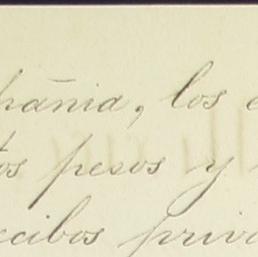 pañia, los e
os pesos y
ecibos priva